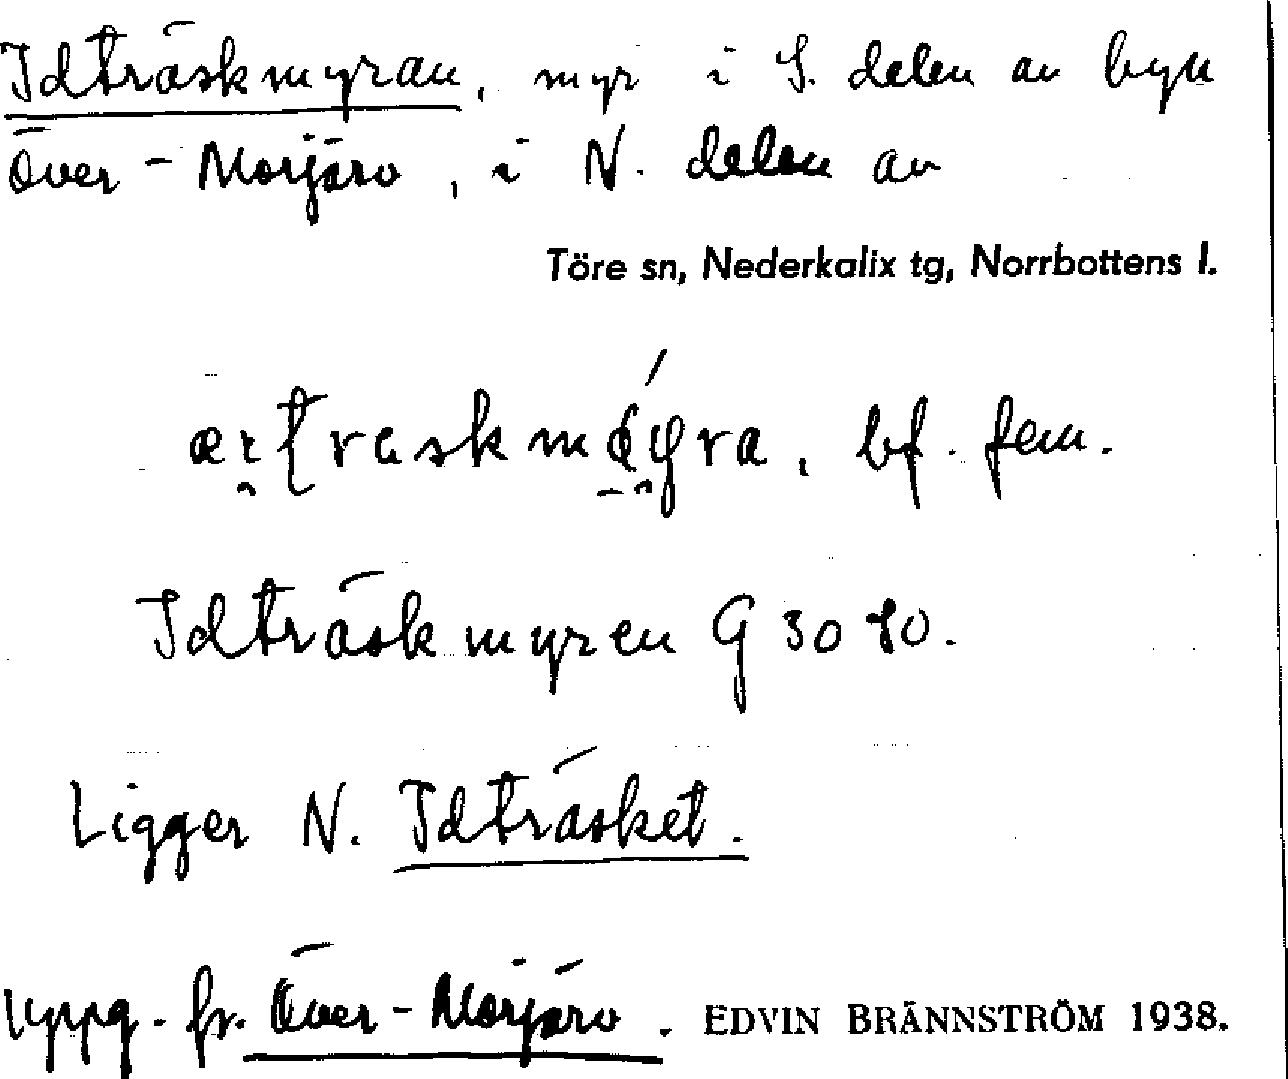 Idträskmyran, myr i S. delen av byn
Över-Morjärv, i N. delen av
Töre sn, Nederkalix tg, Norrbottens l.
bf. fem.
Idträskmyren G 3080.
Ligger N. Idträsket.
Uppg. fr. Över-Morjärv. EDVIN BRÄNNSTRÖM 1938.